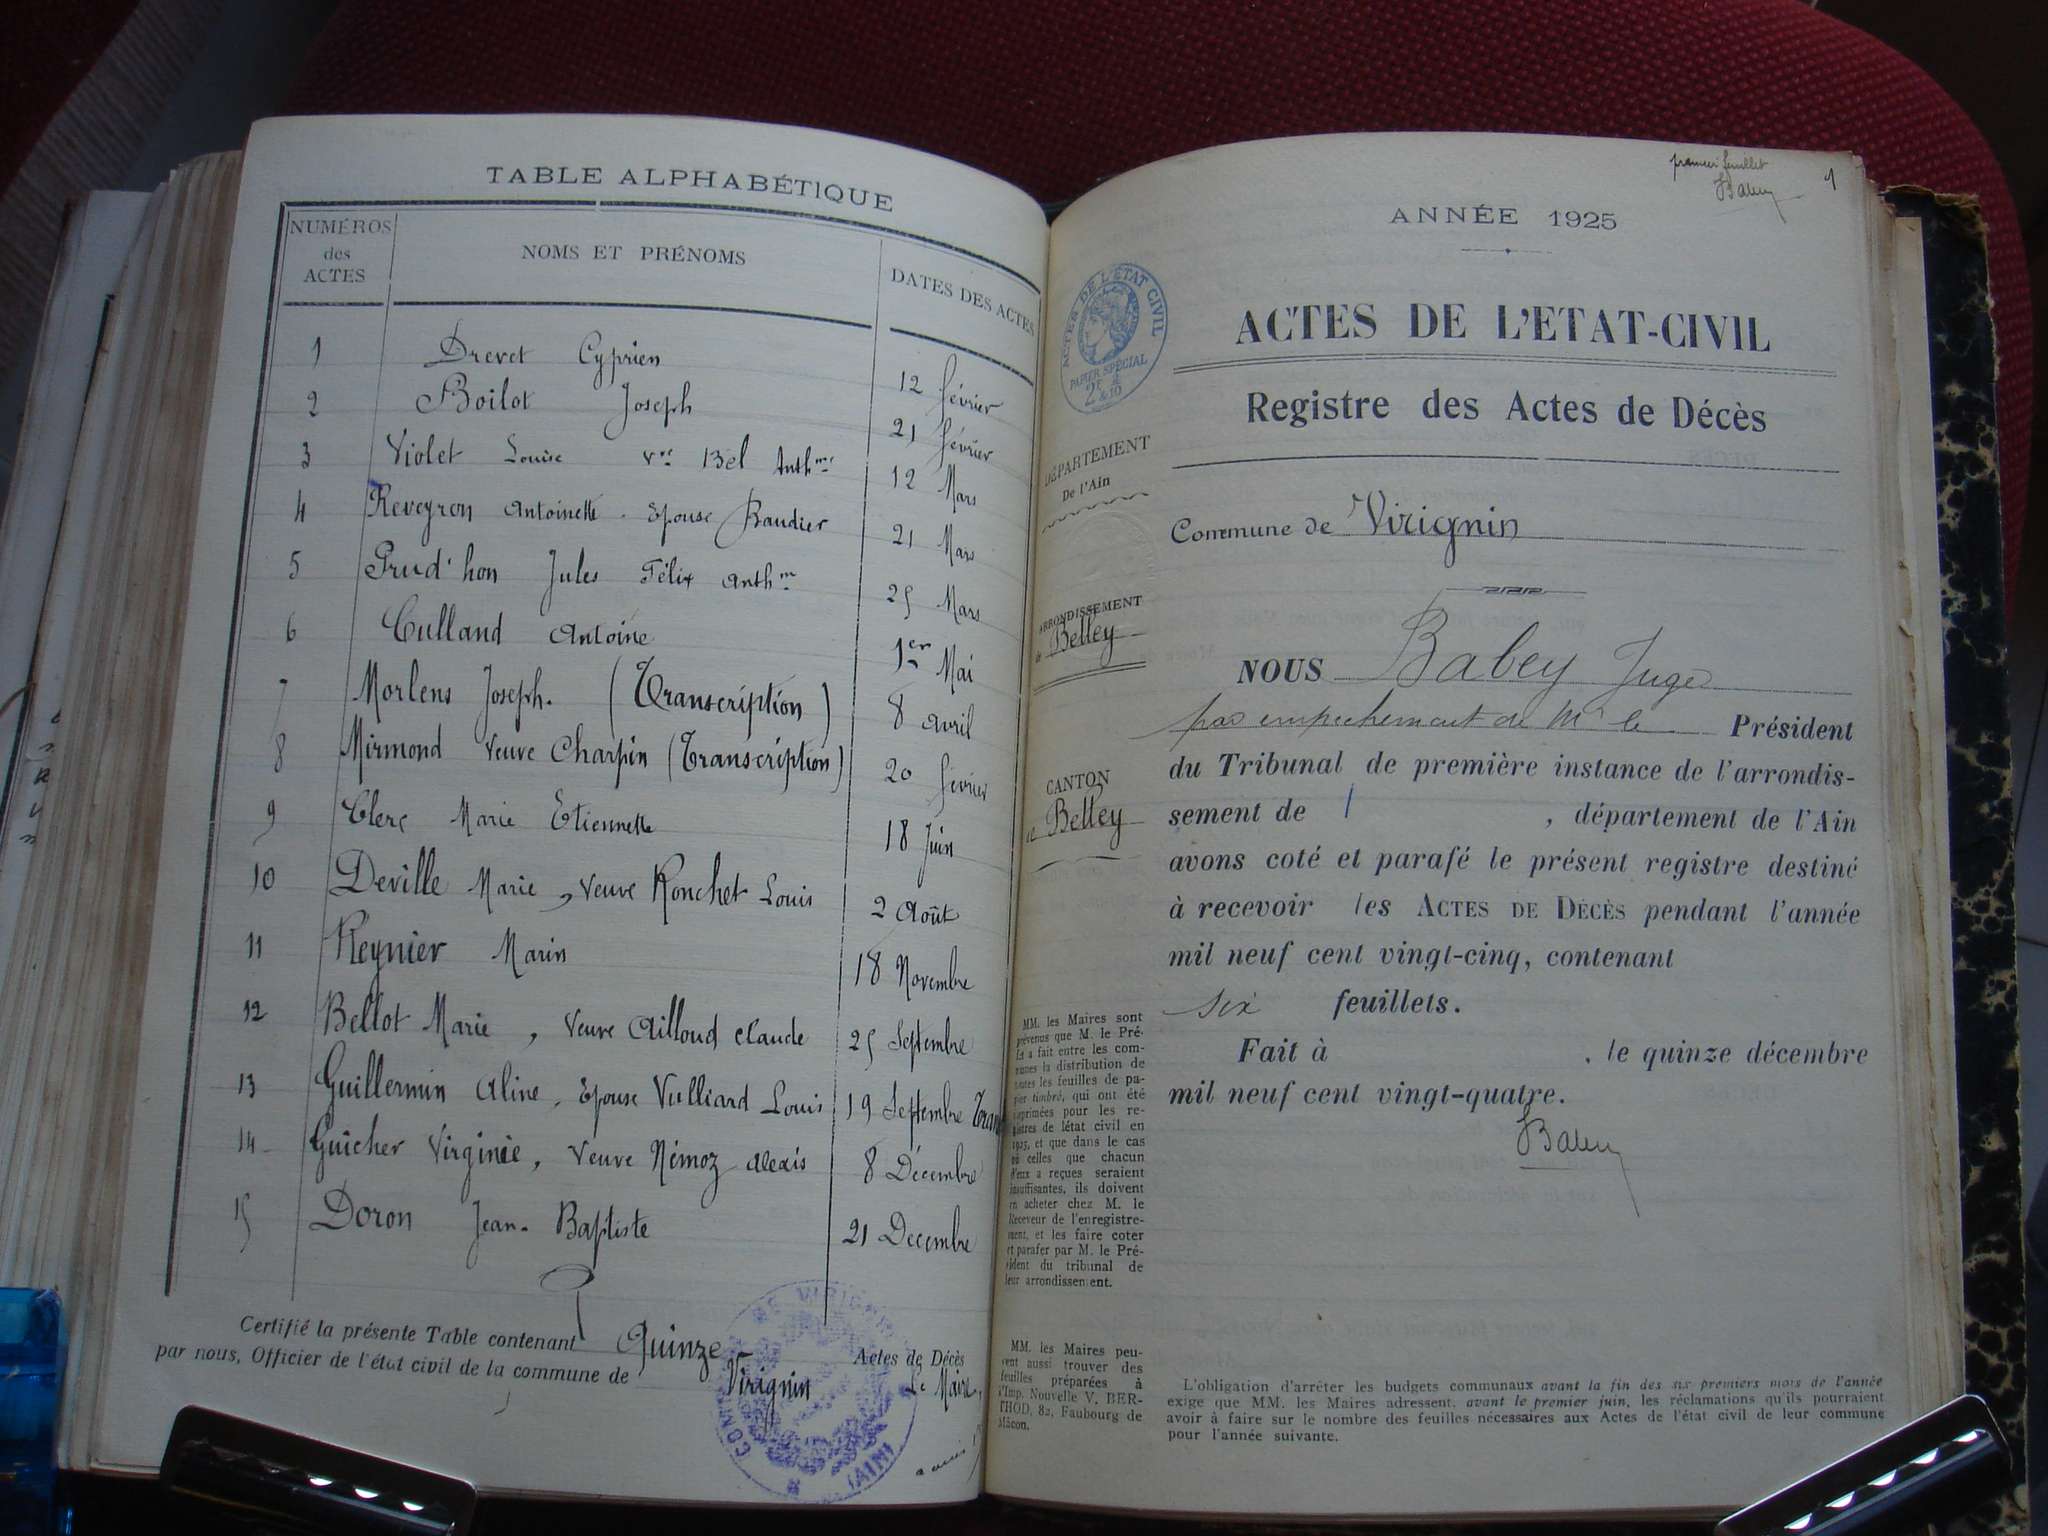 TABLE ALPHABÉTIQUE
NUMÉROS des ACTES
NOMS ET PRÉNOMS
DATES DES ACTES
1 Drevet Cyprien 12 février
2 Boilot Joseph 21 février
3 Violet Louise Vve Bel Anthme 12 Mars
4 Reveyron Antoinette. Epouse Baudier 21 Mars
5 Prud'hon Jules Félix Anthme 25 Mars
6 Culland Antoine 1er Mai
7 Morlens Joseph. (Transcription) 8 avril
8 Mirmond Veuve Charpin (Transcription) 20 février
9 Clerc Marie Etiennette 18 Juin
10 Deville Marie, Veuve Ronchet Louis 2 Août
11 Reynier Marin 18 Novembre
12 Bellot Marie, Veuve Ailloud Claude 25 Septembre
13 Guillermin Aline, Epouse Vulliard Louis 19 Septembre Trans
14 Guicher Virginie, Veuve Némoz Alexis 8 Décembre
15 Doron Jean-Baptiste 21 Decembre
Certifié la présente Table contenant Quinze Actes de Décès
par nous, Officier de l'état civil de la commune de Virignin
Le Maire,
COMMUNE DE VIRIGNIN
(AIN)
premier feuillet 1
Babey
ANNÉE 1925
ACTES DE L'ÉTAT CIVIL
PAPIER SPÉCIAL
ACTES DE L'ETAT-CIVIL
Registre des Actes de Décès
DÉPARTEMENT
De l'Ain
Commune de Virignin
ARRONDISSEMENT
de Belley
CANTON
de Belley
NOUS Babey Juge
par empechement de Mr le Président
du Tribunal de première instance de l'arrondis-
sement de , département de l'Ain
avons coté et parafé le présent registre destiné
à recevoir les ACTES DE DÉCÈS pendant l'année
mil neuf cent vingt-cinq, contenant
six feuillets.
Fait à , le quinze décembre
mil neuf cent vingt-quatre.
Babey
MM. les Maires sont
prévenus que M. le Pré-
fet a fait entre les com-
munes la distribution de
toutes les feuilles de pa-
pier timbré, qui ont été
imprimées pour les re-
gistres de létat civil en
1925, et que dans le cas
où celles que chacun
d'eux a reçues seraient
insuffisantes, ils doivent
en acheter chez M. le
Receveur de l'enregistre-
ment, et les faire coter
et parafer par M. le Pré-
sident du tribunal de
leur arrondissement.
MM. les Maires peu-
vent aussi trouver des
feuilles préparées à
l'Imp. Nouvelle V. BER-
THOD, 82, Faubourg de
Mâcon.
L'obligation d'arrêter les budgets communaux avant la fin des six premiers mois de l'année
exige que MM. les Maires adressent, avant le premier juin, les réclamations qu'ils pourraient
avoir à faire sur le nombre des feuilles nécessaires aux Actes de l'état civil de leur commune
pour l'année suivante.